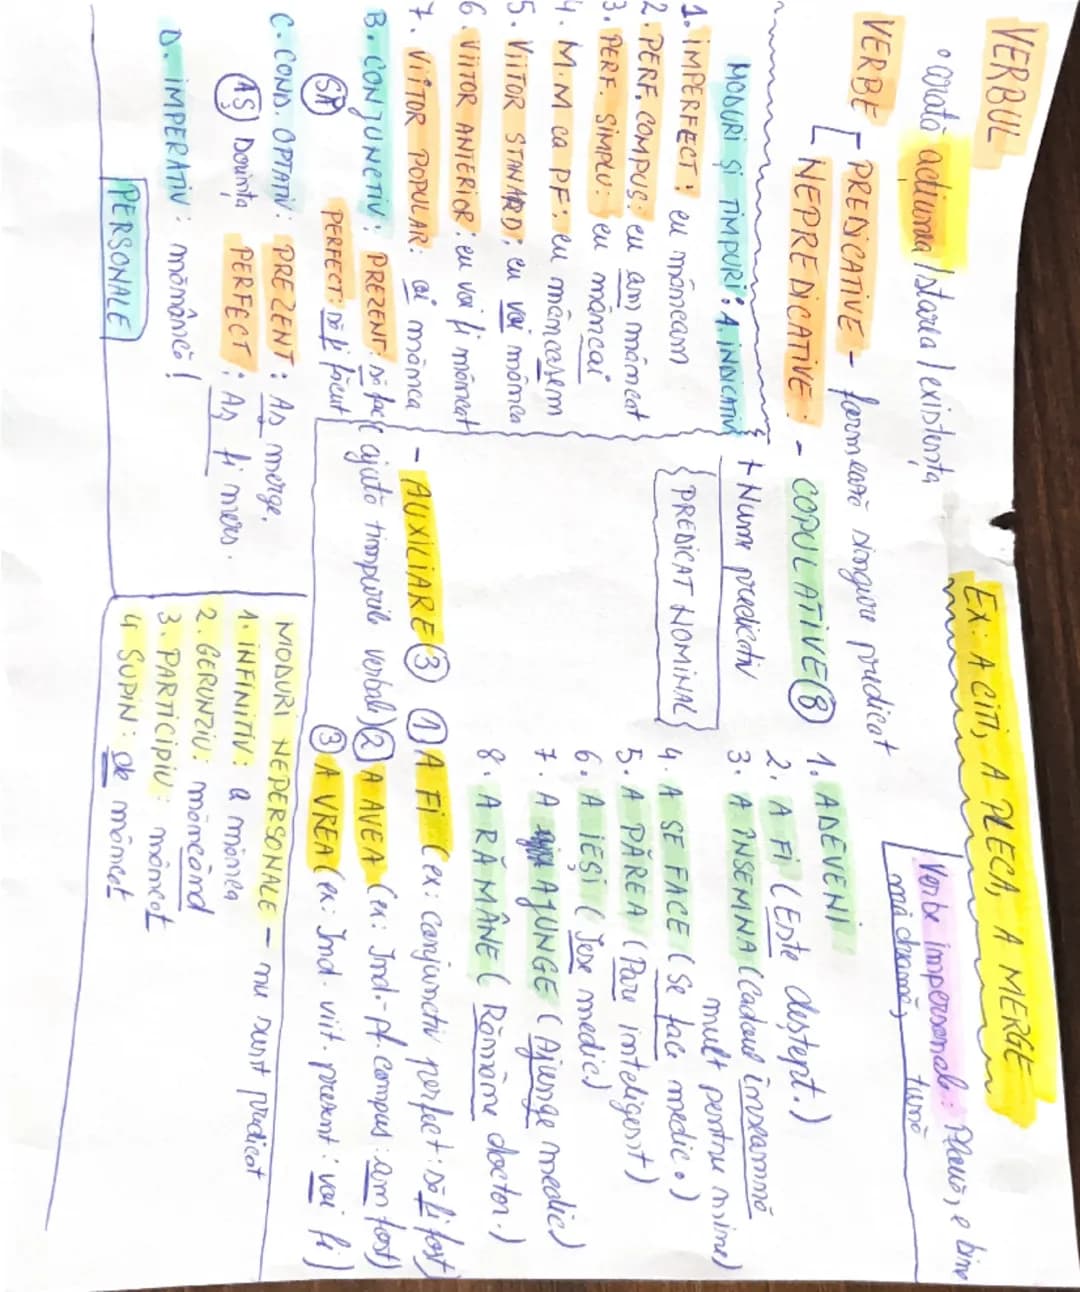 VERBUL
• arată acțiunea/starea/existența
Ex: A CITI, A PLECA, A MERGE
VERBE
PREDICATIVE - formează singure predicat
NEPREDICATIVE: - COPULATIVE (8)
+ Nume predicativ
PREDICAT NOMINAL
Verbe impersonale: Plouă, e bine
mă cheamă, tună
1. A DEVENI
2. A FI (Este deștept.)
3. A ÎNSEMNA (Cadoul înseamnă
mult pentru mine)
4. A SE FACE (Se face medic.)
5. A PĂREA (Pare inteligent)
6. A IEȘI (Iese medic)
7. A AJUNGE (Ajunge medic)
8. A RĂMÂNE (Rămâne doctor.)
- AUXILIARE (3)
(ajută timpurile verbale)
① A FI (ex: conjunctiv perfect: să fi fost)
② A AVEA (ex: Ind.- pf. compus: am fost)
③ A VREA (ex: Ind. viit. prezent: voi fi)
MODURI ȘI TIMPURI: A. INDICATIV
1. IMPERFECT: eu mâncam
2. PERF. COMPUS: eu am mâncat
3. PERF. SIMPLU: eu mâncai
4. M.M ca PF: eu mâncasem
5. VIITOR STANARD: eu voi mânca
6. VIITOR ANTERIOR: eu voi fi mâncat
7. VIITOR POPULAR: oi mânca
B. CONJUNCTIV: PREZENT: să fac
SĂ PERFECT: să fi făcut
C. COND. OPTATIV: PREZENT: Aș merge.
AȘ Dorința PERFECT: Aș fi mers.
D. IMPERATIV: mănâncă!
PERSONALE
MODURI NEPERSONALE - nu sunt predicat
1. INFINITIV: a mânca
2. GERUNZIU: mâncând
3. PARTICIPIU: mâncat
4 SUPIN: de mâncat